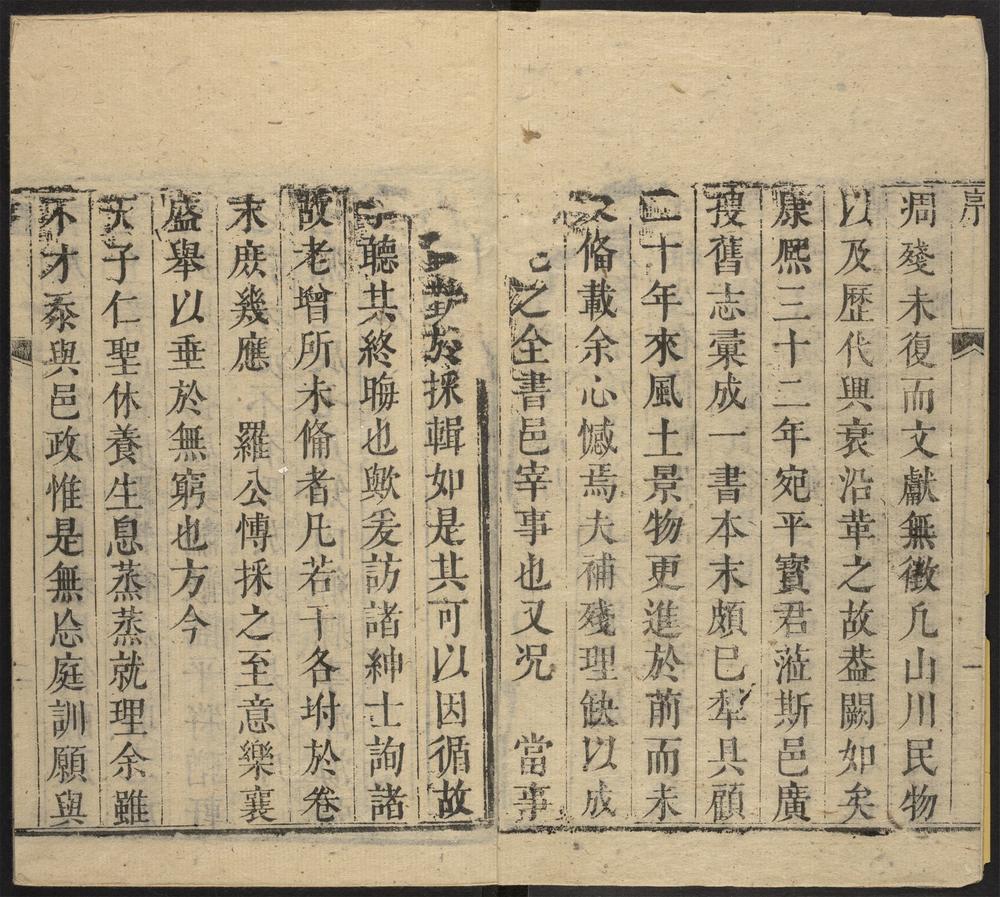 序
凋殘未復而文獻無徵凡山川民物
以及歷代興衰沿革之故葢闕如矣
康熙三十二年宛平寳君蒞斯邑廣
搜舊志彚成一書本末頗已犁具顧
二十年來風土景物更進於前而未
及備載余心憾焉夫補殘理缺以成
之全書邑宰事也又况 當事
於採輯如是其可以因循故
聽其終晦也歟爰訪諸紳士詢諸
故老增所未偹者凡若干各坿於卷
末庶幾應 羅公愽採之至意樂襄
盛舉以垂於無窮也方今
天子仁聖休養生息蒸蒸就理余雖
不才忝與邑政惟是無忝庭訓願與
一